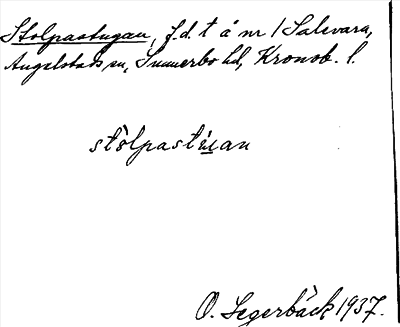 Stolpastugan, f.d. t å nr 1 Salevara,
Angelstads sn, Sunnerbo hd, Kronob. l.
stòlpastúgan
O. Segerbäck 1937.